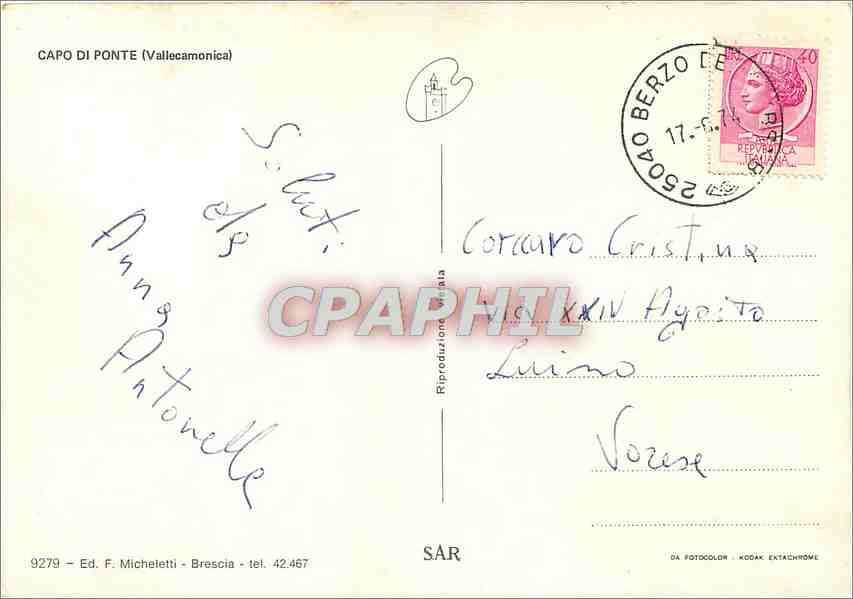 CAPO DI PONTE (Vallecamonica)
25040 BERZO DE
17.-6.74
LIRE 40
REPVBBLICA
ITALIANA
Saluti
da
Anna
Antonella
Riproduzione vietata
CPAPHIL
Corcaro Cristina
via XXIV Agosto
Luino
Varese
9279 - Ed. F. Micheletti - Brescia - tel. 42.467
SAR
DA FOTOCOLOR - KODAK EKTACHROME